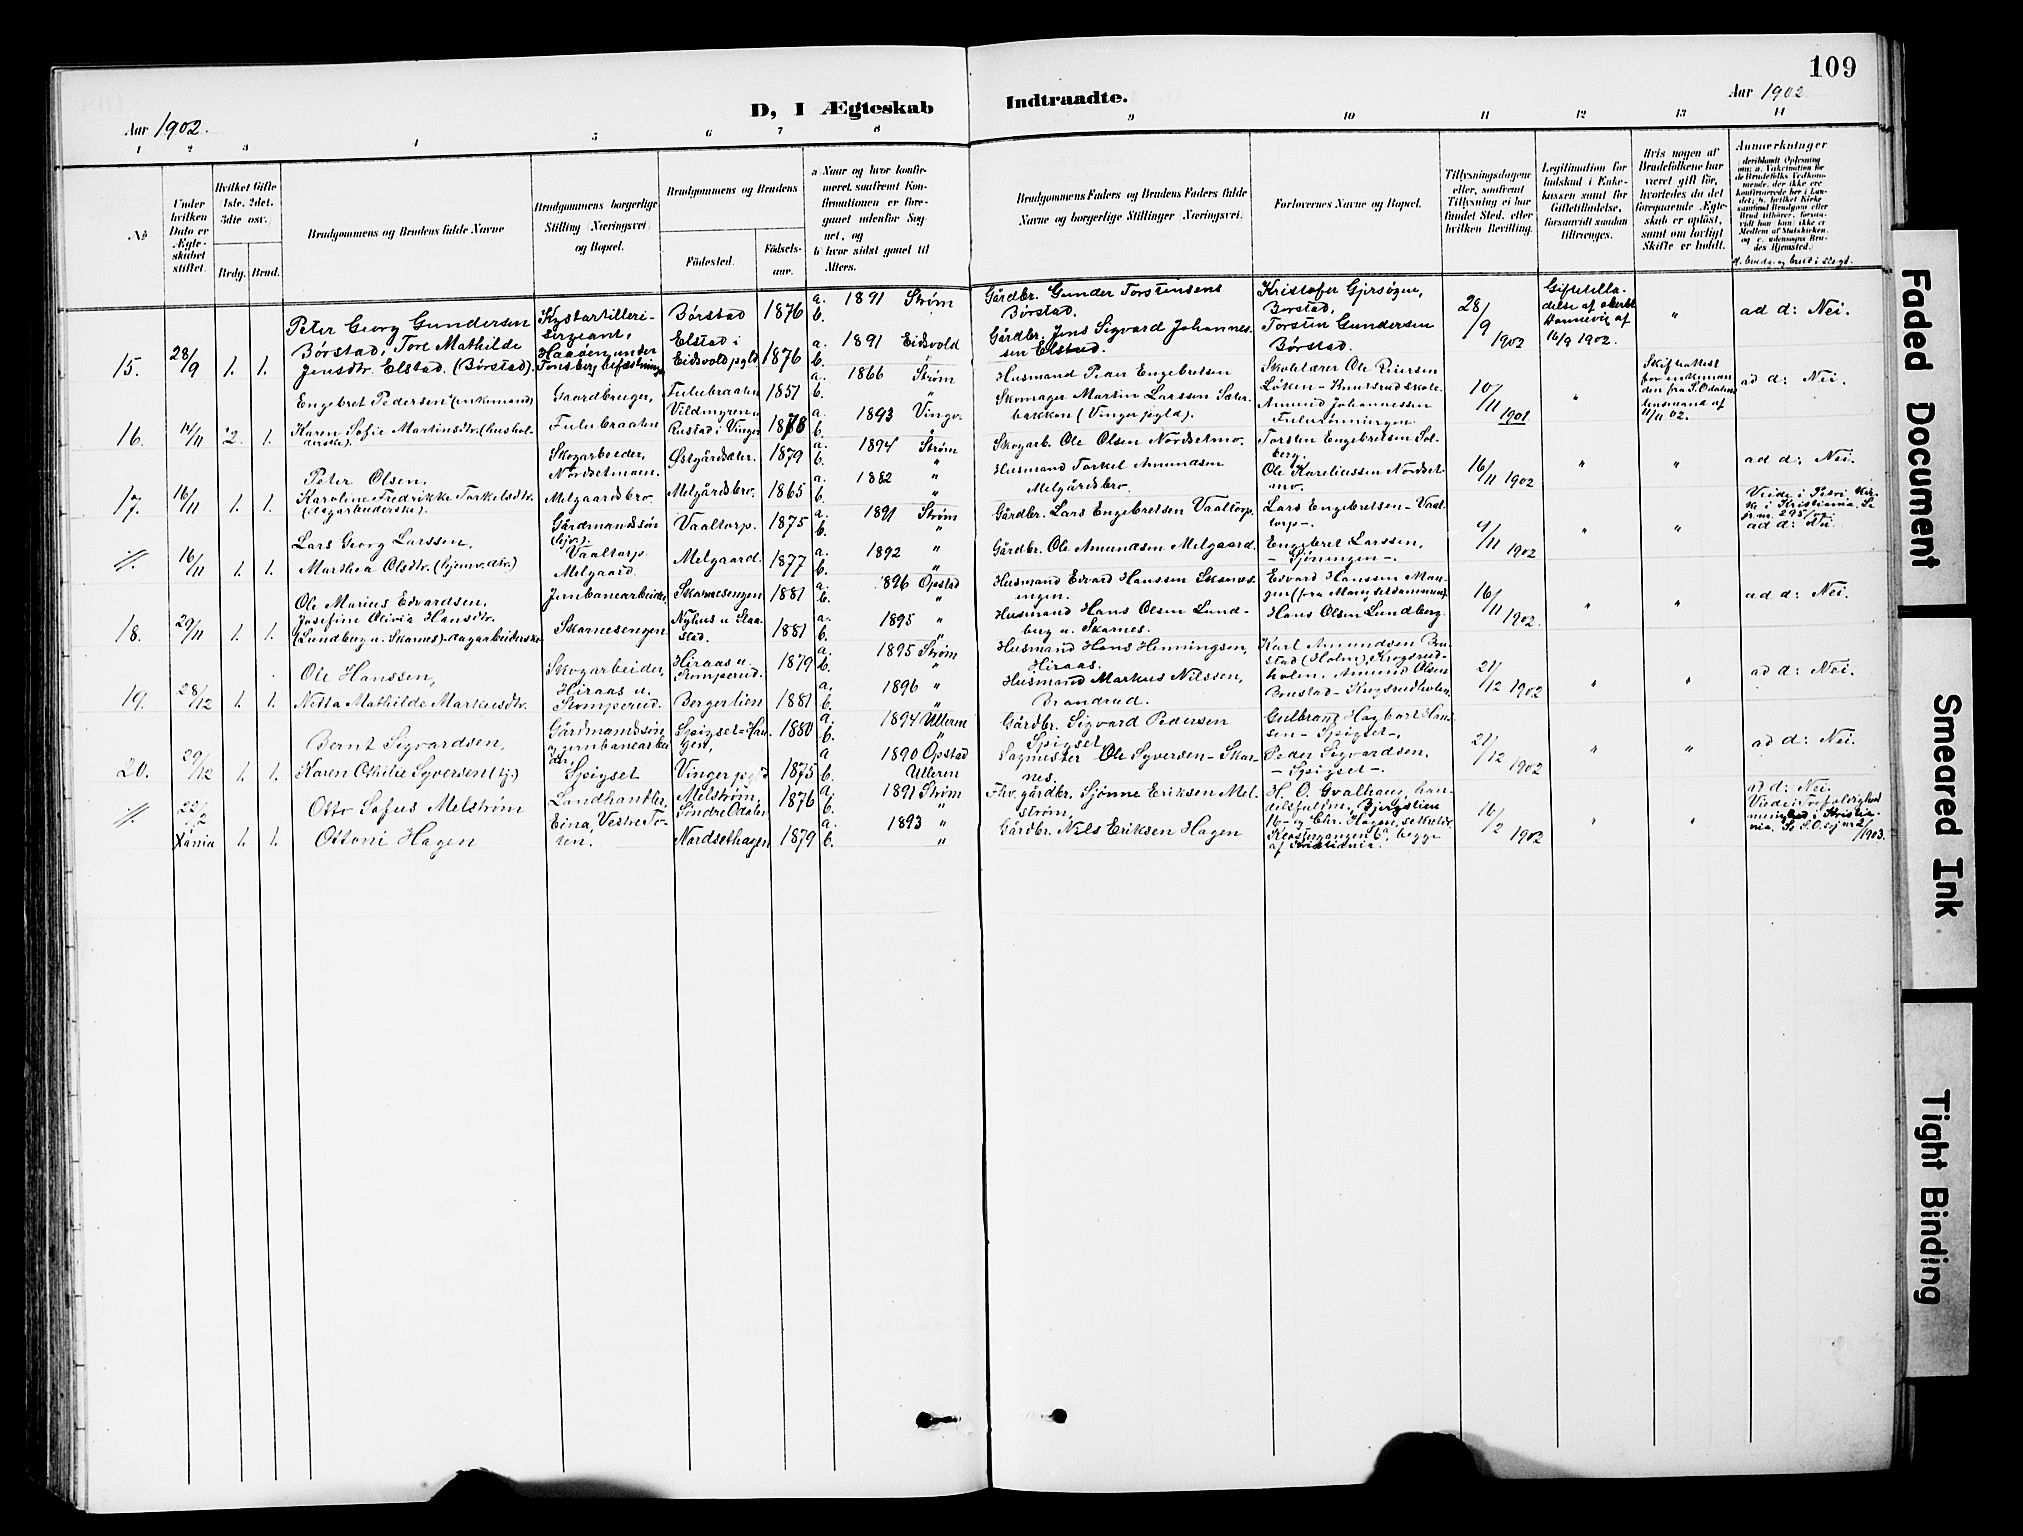 109
D, I Ægteskab Indtraadte.
Aar 1902.
Aar 1902
1 2 3 4 5 6 7 8 9 10 11 12 13 14
No
Under hvilken Dato er Ægteskabet stiftet.
Hvilket Gifte (1ste, 2det, 3dte osv.)
Brdg. Brud.
Brudgommens og Brudens fulde Navne
Brudgommens borgerlige Stilling (Næringsvei) og Bopæl.
Brudgommens og Brudens
Fødested.
Fødselsaar.
a) Naar og hvor konfirmeret, saafremt Konfirmationen er foregaaet udenfor Sognet, og
b) hvor sidst gaaet til Alters.
Brudgommens Faders og Brudens Faders fulde Navne og borgerlige Stillinger (Næringsvei).
Forlovernes Navne og Bopæl.
Tillysningsdagene eller, saafremt Tillysning ei har fundet Sted, efter hvilken Bevilling.
Legitimation for Indskud i Enkekassen samt for Giftetilladelse, forsaavidt saadan tiltrænges.
Hvis nogen af Brudefolkene har været gift før, hvorledes da det foregaaende Ægteskab er opløst, samt om lovligt Skifte er holdt.
Anmærkninger
d. brudg. og brud i slægt.
15. 28/9 1. 1.
Peter Georg Gundersen
Børstad, Tore Mathilde
Jensdtr. Elstad. (Børstad).
Kystartilleri-
sergeant,
Børstad 1876 a. 1891 Strøm b.
Elstad i
Eidsvold pgld 1876 a. 1891 Eidsvold b.
Gårdbr. Gunder Torstensens
Børstad.
Gårdbr. Jens Sigvard Johannes-
sen Elstad.
Kristofer Gjersøgen,
Børstad,
Torsten Gundersen
Børstad.
28/9 1902
Giftetilla-
delse af
16/9 1902.
" ad d: Nei.
16. 14/11 2. 1.
Engebret Pedersen (enkemand)
Karen Sofie Martinsdtr. (hushol-
derske).
Gaardbruger,
Fulubraaten
Fulubraaten 1851 a. 1866 Strøm b. "
Vildmyren u
Rustad i Vinger 1878 a. 1893 Vinger b. "
Husmand Peder Engebretsen
Skomager Martin Larssen Sæter-
bakken (Vinger pgld).
Skolelærer Ole Peersen
Løken - Knutsrud skole.
Amund Johannessen
Fulurønningen
10/11 1901
"
Skifteattest
for enkeman
den fra S. Odalens
lensmand af
11/11 02.
ad d: Nei.
17. 16/11 1. 1.
Peter Olsen.
Karoline Fredrikke Torkelsdtr.
(dagarbeiderske).
Skogarbeider,
Nordsetmoen.
Melgaardsbro.
Østgårdsæter. 1879 a. 1894 Strøm b. "
Melgårdsbro. 1865 a. 1882 " b. "
Skogarb. Ole Olsen Nordsetmo.
Husmand Torkel Amundsen
Melgårdsbro.
Torsten Engebretsen Sol-
berg.
Ole Kareliussen Nordset-
mo.
16/11 1902 " " ad d: Nei.
16/11 1. 1.
Lars Georg Larssen.
Marthea Olsdtr. (hjemv. dtr.)
Gårdmandssøn
(hjv.).
Vaaltorp.
Melgaard.
Vaaltorp. 1875 a. 1891 Strøm b. "
Melgaard. 1877 a. 1892 " b. "
Gårdbr. Lars Engebretsen Vaaltorp.
Gårdbr. Ole Amundsen Melgaard.
Lars Engebretsen - Vaal
torp-.
Engebret Larssen,
- Gjøningen -.
9/11 1902 " "
Viede i Petri kir-
ke i Kristiania. Se
jr. nr. 295/02
ad d: Nei
18. 29/11 1. 1.
Ole Marius Edvardsen.
Josefine Olivia Hansdtr.
(Lundberg u. Skarnes). dagarbeiderske
Jernbanearbeider,
Skarnesengen
Skarnesengen 1881 a. 1896 Opstad b. "
Nyhus u. Slaa-
stad. 1881 a. 1895 " b. "
Husmand Edvard Hanssen Skarnes-
engen.
Husmand Hans Olsen Lund-
berg u. Skarnes.
Edvard Hanssen Man-
gen (fra Mangsetdammen).
Hans Olsen Lundberg.
16/11 1902. " " ad d: Nei.
19. 28/12 1. 1.
Ole Hanssen,
Netta Mathilde Markusdtr.
Skogarbeider,
Hiraas u.
Komperud.
Hiraas u.
Komperud. 1879 a. 1895 Strøm b. "
Bergerlien 1881 a. 1896 " b. "
Husmand Hans Henningsen,
Hiraas.
Husmand Markus Nilssen,
Brandrud.
Karl Amundsen Bru-
stad (Holm), Krogsrud-
holen. Amund Olsen
Brustad - Krogsrudholen.
21/12 1902 " " ad d: Nei.
20. 29/12 1. 1.
Bernt Sigvardsen,
Karen Othilie Syversen (tj.)
Gårdmandssøn
og jernbanearbei
der,
Spigset
Spigset - Hau
gen, 1880 a. 1894 Ulleren b. "
Vinger pgld 1875 a. 1890 Opstad b. Ulleren
Gårdbr. Sigvard Pedersen
Spigset
Sagmester Ole Syversen - Skar-
nes.
Gulbrand Hagbart Han
sen - Spigset -.
Peder Sigvardsen,
- Spigset -.
21/12 1902 " " ad d: Nei.
22/2 i Xania 1. 1.
Otto Sofus Melstrøm
Ottoni Hagen
Landhandler,
Eina, Vestre To-
ten.
Melstrøm,
Søndre Odalen 1876 a. 1891 Strøm b. "
Nordsethagen 1879 a. 1893 " b. "
Fhv. gårdbr. Sjønne Eriksen Mel-
strøm,
Gårdbr. Nils Eriksen Hagen
H. O. Qvalhaug, han-
delsfuldm. Bjergstien
16 - og Chr. Hagen, sekretær
begge
af Kristiania.
16/2 1902 " "
ad d: Nei
Viede i Trefoldighed
menighed i Kristia-
nia. Se S.O. sjr 2/
1903.
Faded Document
Smeared Ink
Tight Binding